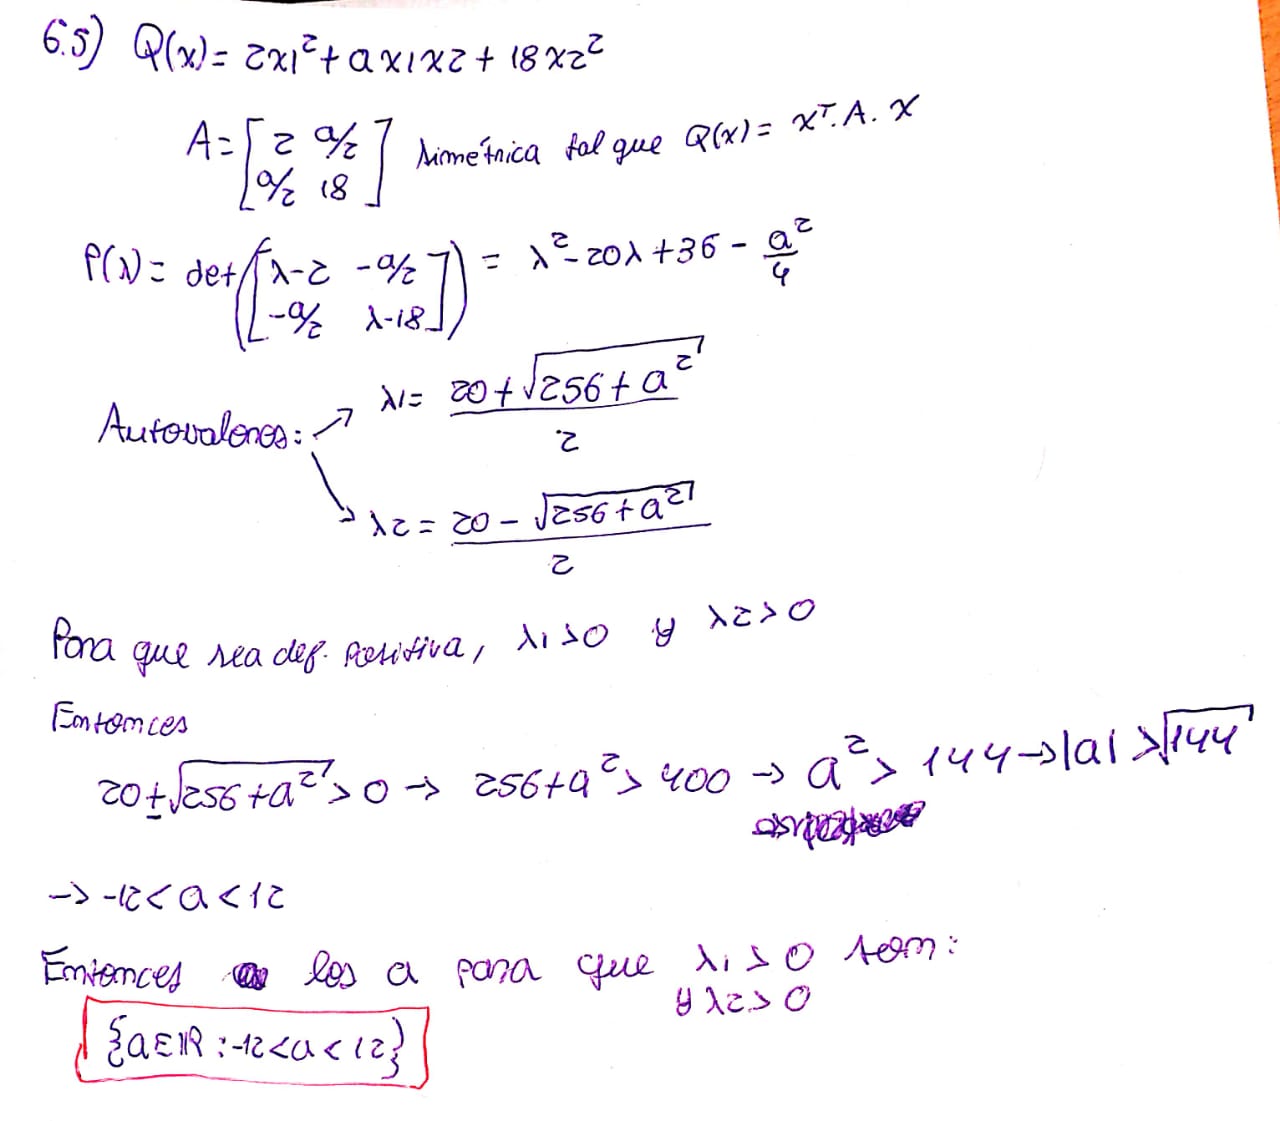 6.5) Q(x) = 2x1² + ax1x2 + 18x2²
A = [2 a/2; a/2 18] simétrica tal que Q(x) = xᵀ. A. X
P(λ) = det([λ-2 -a/2; -a/2 λ-18]) = λ² - 20λ + 36 - a²/4
Autovalores: → λ1 = (20 + √(256 + a²))/2
→ λ2 = (20 - √(256 + a²))/2
Para que sea def. Positiva, λ1 > 0 y λ2 > 0
Entonces
20 ± √(256 + a²) > 0 → 256 + a² > 400 → a² > 144 → |a| > √144
→ -12 < a < 12
Entonces los a para que λ1 > 0 son:
y λ2 > 0
{a ∈ ℝ : -12 < a < 12}